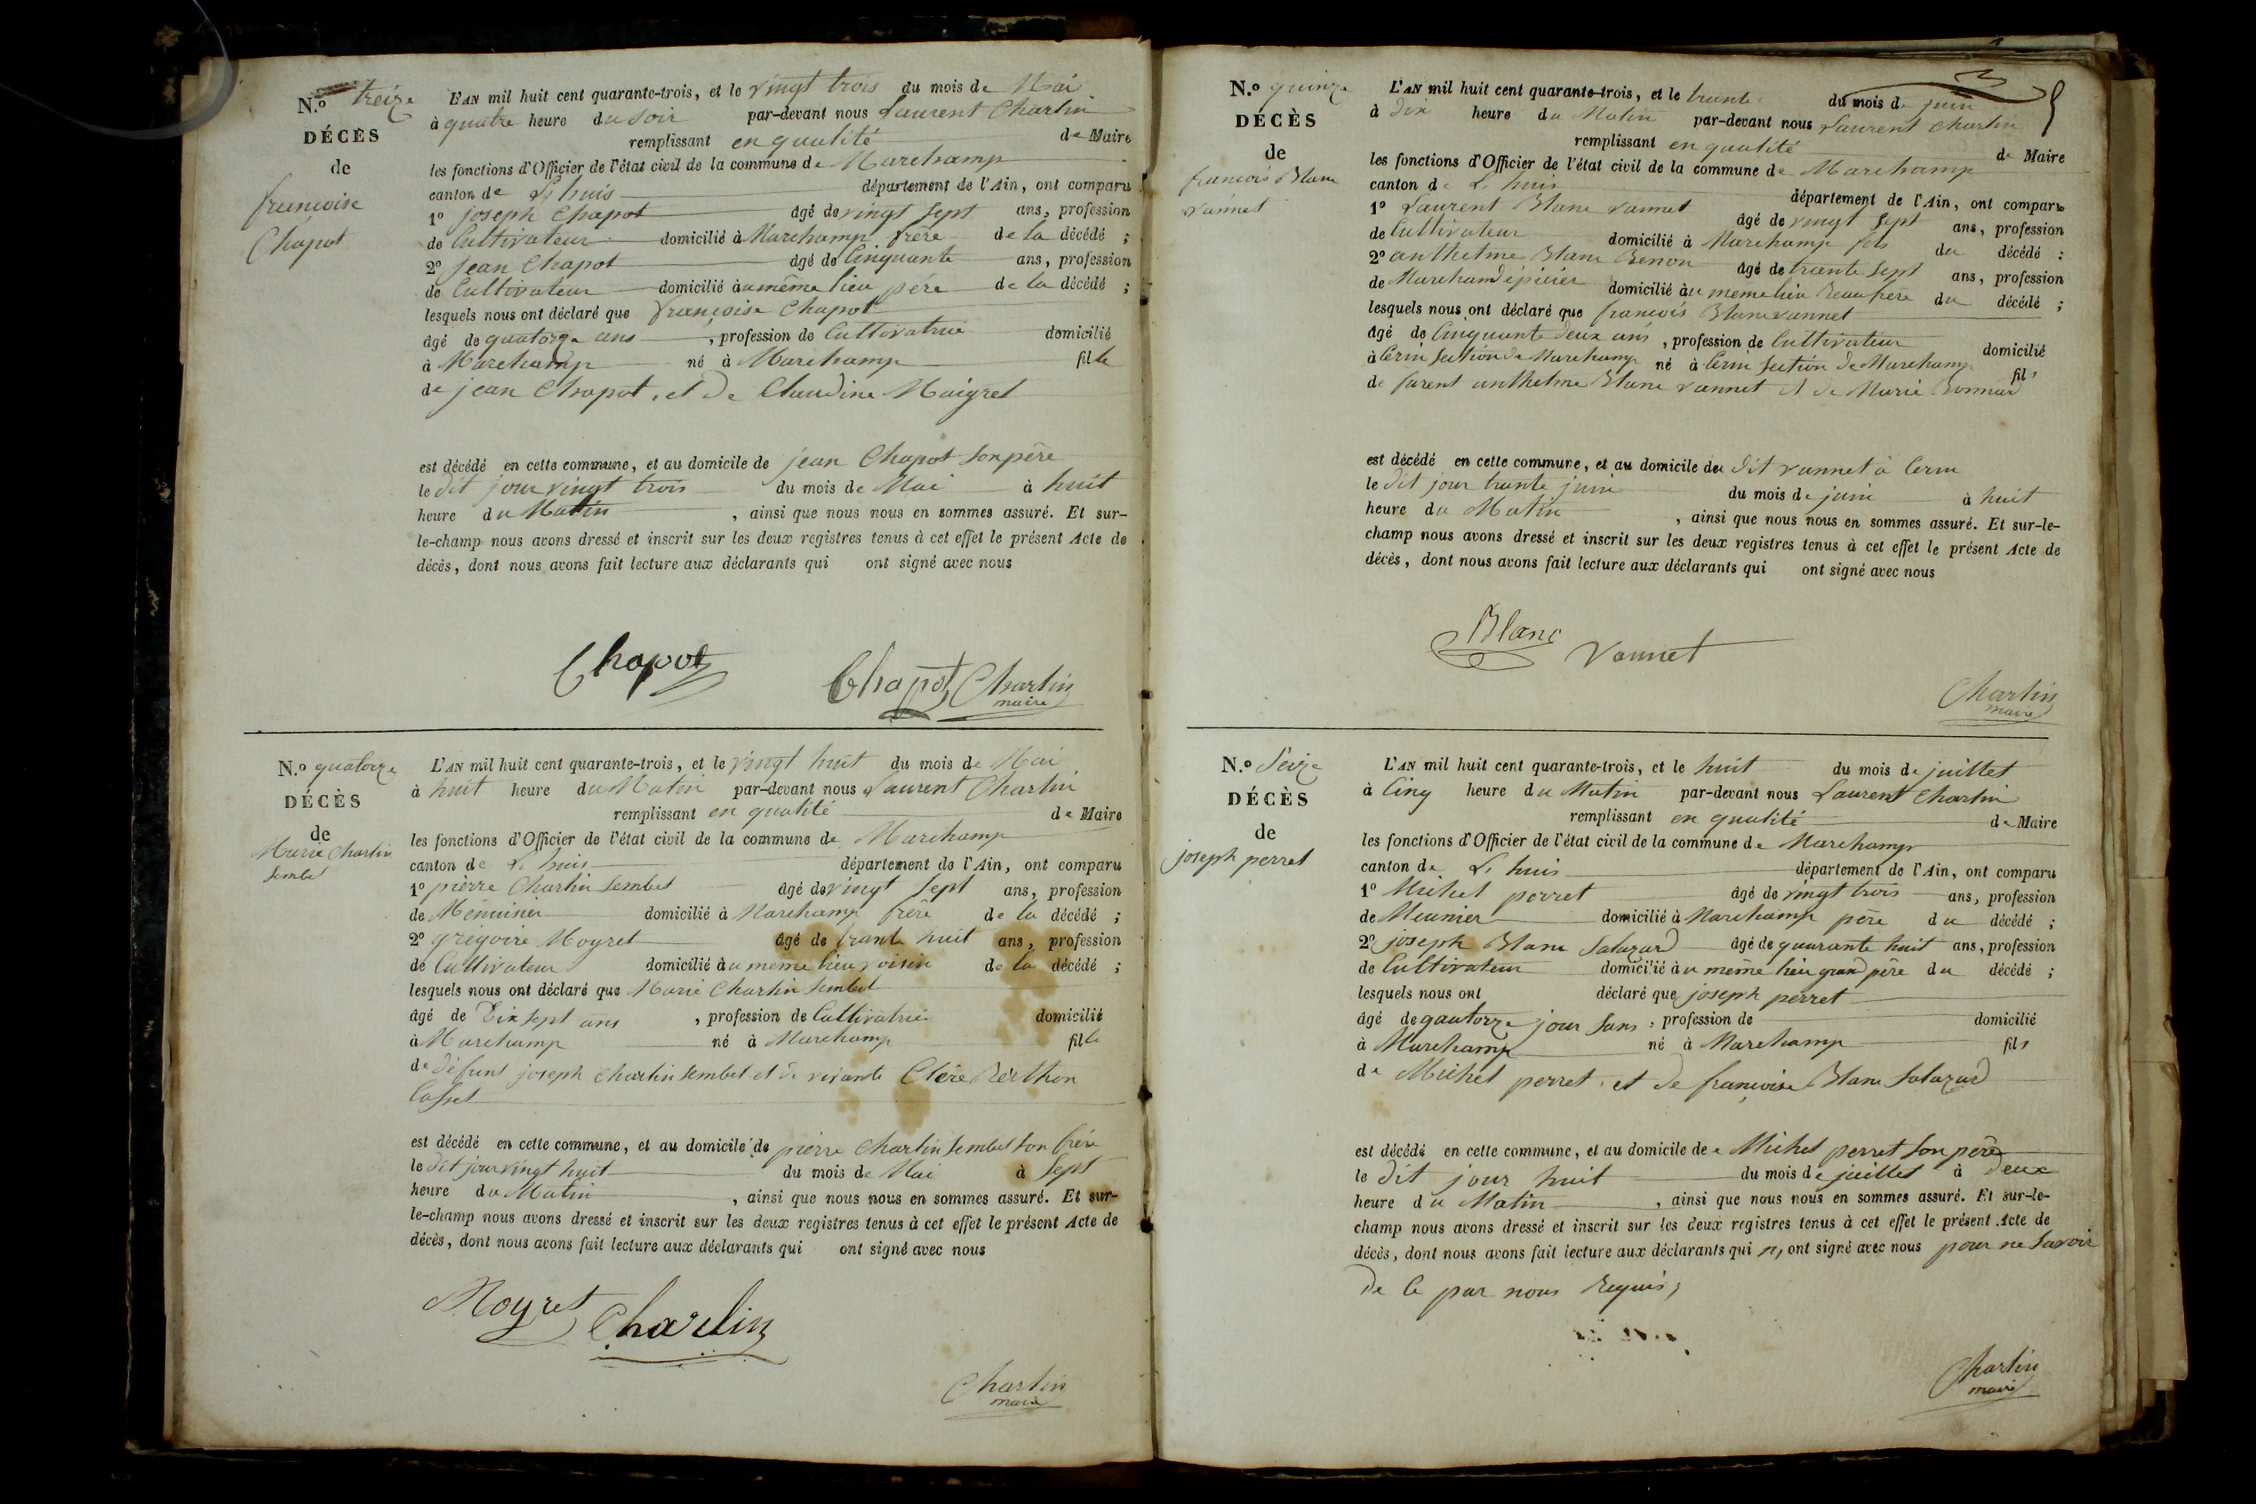 N.o treize
DÉCÈS
de
francoise
Chapot
L'AN mil huit cent quarante-trois, et le vingt trois du mois de Mai
à quatre heure du soir par-devant nous Laurent Charlin
remplissant en qualité de Maire
les fonctions d'Officier de l'état civil de la commune de Marchamp
canton de L'huis département de l'Ain, ont comparu
1o joseph Chapot âgé de vingt sept ans, profession
de Cultivateur domicilié à Marchamp frère de la décédé ;
2o jean Chapot âgé de Cinquante ans, profession
de Cultivateur domicilié au même lieu père de la décédé ;
lesquels nous ont déclaré que françoise Chapot
âgé de quatorze ans , profession de Cultivatrice domicilié
à Marchamp né à Marchamp fille
de jean Chapot, et de Claudine Maigret
est décédé en cette commune, et au domicile de jean Chapot son père
le dit jour vingt trois du mois de Mai à huit
heure du Matin , ainsi que nous nous en sommes assuré. Et sur-
le-champ nous avons dressé et inscrit sur les deux registres tenus à cet effet le présent Acte de
décès, dont nous avons fait lecture aux déclarants qui ont signé avec nous
Chapot Chapot Charlin
maire
N.o quatorze
DÉCÈS
de
Marie Charlin
Sembet
L'AN mil huit cent quarante-trois, et le vingt huit du mois de Mai
à huit heure du Matin par-devant nous Laurent Charlin
remplissant en qualité de Maire
les fonctions d'Officier de l'état civil de la commune de Marchamp
canton de L'huis département de l'Ain, ont comparu
1o pierre Charlin Sembet âgé de vingt sept ans, profession
de Ménuisier domicilié à Marchamp frère de la décédé ;
2o grégoire Moyret âgé de trante huit ans, profession
de Cultivateur domicilié au même lieu voisin de la décédé ;
lesquels nous ont déclaré que Marie Charlin Sembet
âgé de Dix sept ans , profession de Cultivatrice domicilié
à Marchamp né à Marchamp fille
de défunt joseph Charlin Sembet et de vivante Clère Berthon
Casset
est décédé en cette commune, et au domicile de pierre Charlin Sembet son frère
le dit jour vingt huit du mois de Mai à Sept
heure du Matin , ainsi que nous nous en sommes assuré. Et sur-
le-champ nous avons dressé et inscrit sur les deux registres tenus à cet effet le présent Acte de
décès, dont nous avons fait lecture aux déclarants qui ont signé avec nous
Moyret Charlin
Charlin
maire
N.o quinze
DÉCÈS
de
francois Blanc
vannet
L'AN mil huit cent quarante-trois, et le trante du mois de juin
à dix heure du Matin par-devant nous Laurent Charlin
remplissant en qualité de Maire
les fonctions d'Officier de l'état civil de la commune de Marchamp
canton de L'huis département de l'Ain, ont comparu
1o Laurent Blanc vannet âgé de vingt sept ans, profession
de Cultivateur domicilié à Marchamp fils du décédé ;
2o anthelme Blanc Benon âgé de trante sept ans, profession
de Marchand épicier domicilié au même lieu Beau frère du décédé ;
lesquels nous ont déclaré que francois Blanc vannet
âgé de Cinquante deux ans , profession de Cultivateur domicilié
à Cerin Section de Marchamp né à Cerin Section de Marchamp fils
de furent anthelme Blanc vannet et de Marie Bonnard
est décédé en cette commune, et au domicile du dit vannet à Cerin
le dit jour trante juin du mois de juin à huit
heure du Matin , ainsi que nous nous en sommes assuré. Et sur-le-
champ nous avons dressé et inscrit sur les deux registres tenus à cet effet le présent Acte de
décès, dont nous avons fait lecture aux déclarants qui ont signé avec nous
Blanc vannet
Charlin
maire
N.o Seize
DÉCÈS
de
joseph perret
L'AN mil huit cent quarante-trois, et le huit du mois de juillet
à Cinq heure du Matin par-devant nous Laurent Charlin
remplissant en qualité de Maire
les fonctions d'Officier de l'état civil de la commune de Marchamp
canton de L'huis département de l'Ain, ont comparu
1o Michel perret âgé de vingt trois ans, profession
de Meunier domicilié à Marchamp père du décédé ;
2o joseph Blanc Salazard âgé de quarante huit ans, profession
de Cultivateur domicilié au même lieu grand père du décédé ;
lesquels nous ont déclaré que joseph perret
âgé de qautorze jour Sans , profession de domicilié
à Marchamp né à Marchamp fils
de Michel perret, et de françoise Blanc Salazard
est décédé en cette commune, et au domicile de Michel perret son père
le dit jour huit du mois de juillet à Deux
heure du Matin , ainsi que nous nous en sommes assuré. Et sur-le-
champ nous avons dressé et inscrit sur les deux registres tenus à cet effet le présent Acte de
décès, dont nous avons fait lecture aux déclarants qui n'ont signé avec nous pour ne Savoir
de Ce par nous Requis,
Charlin
maire